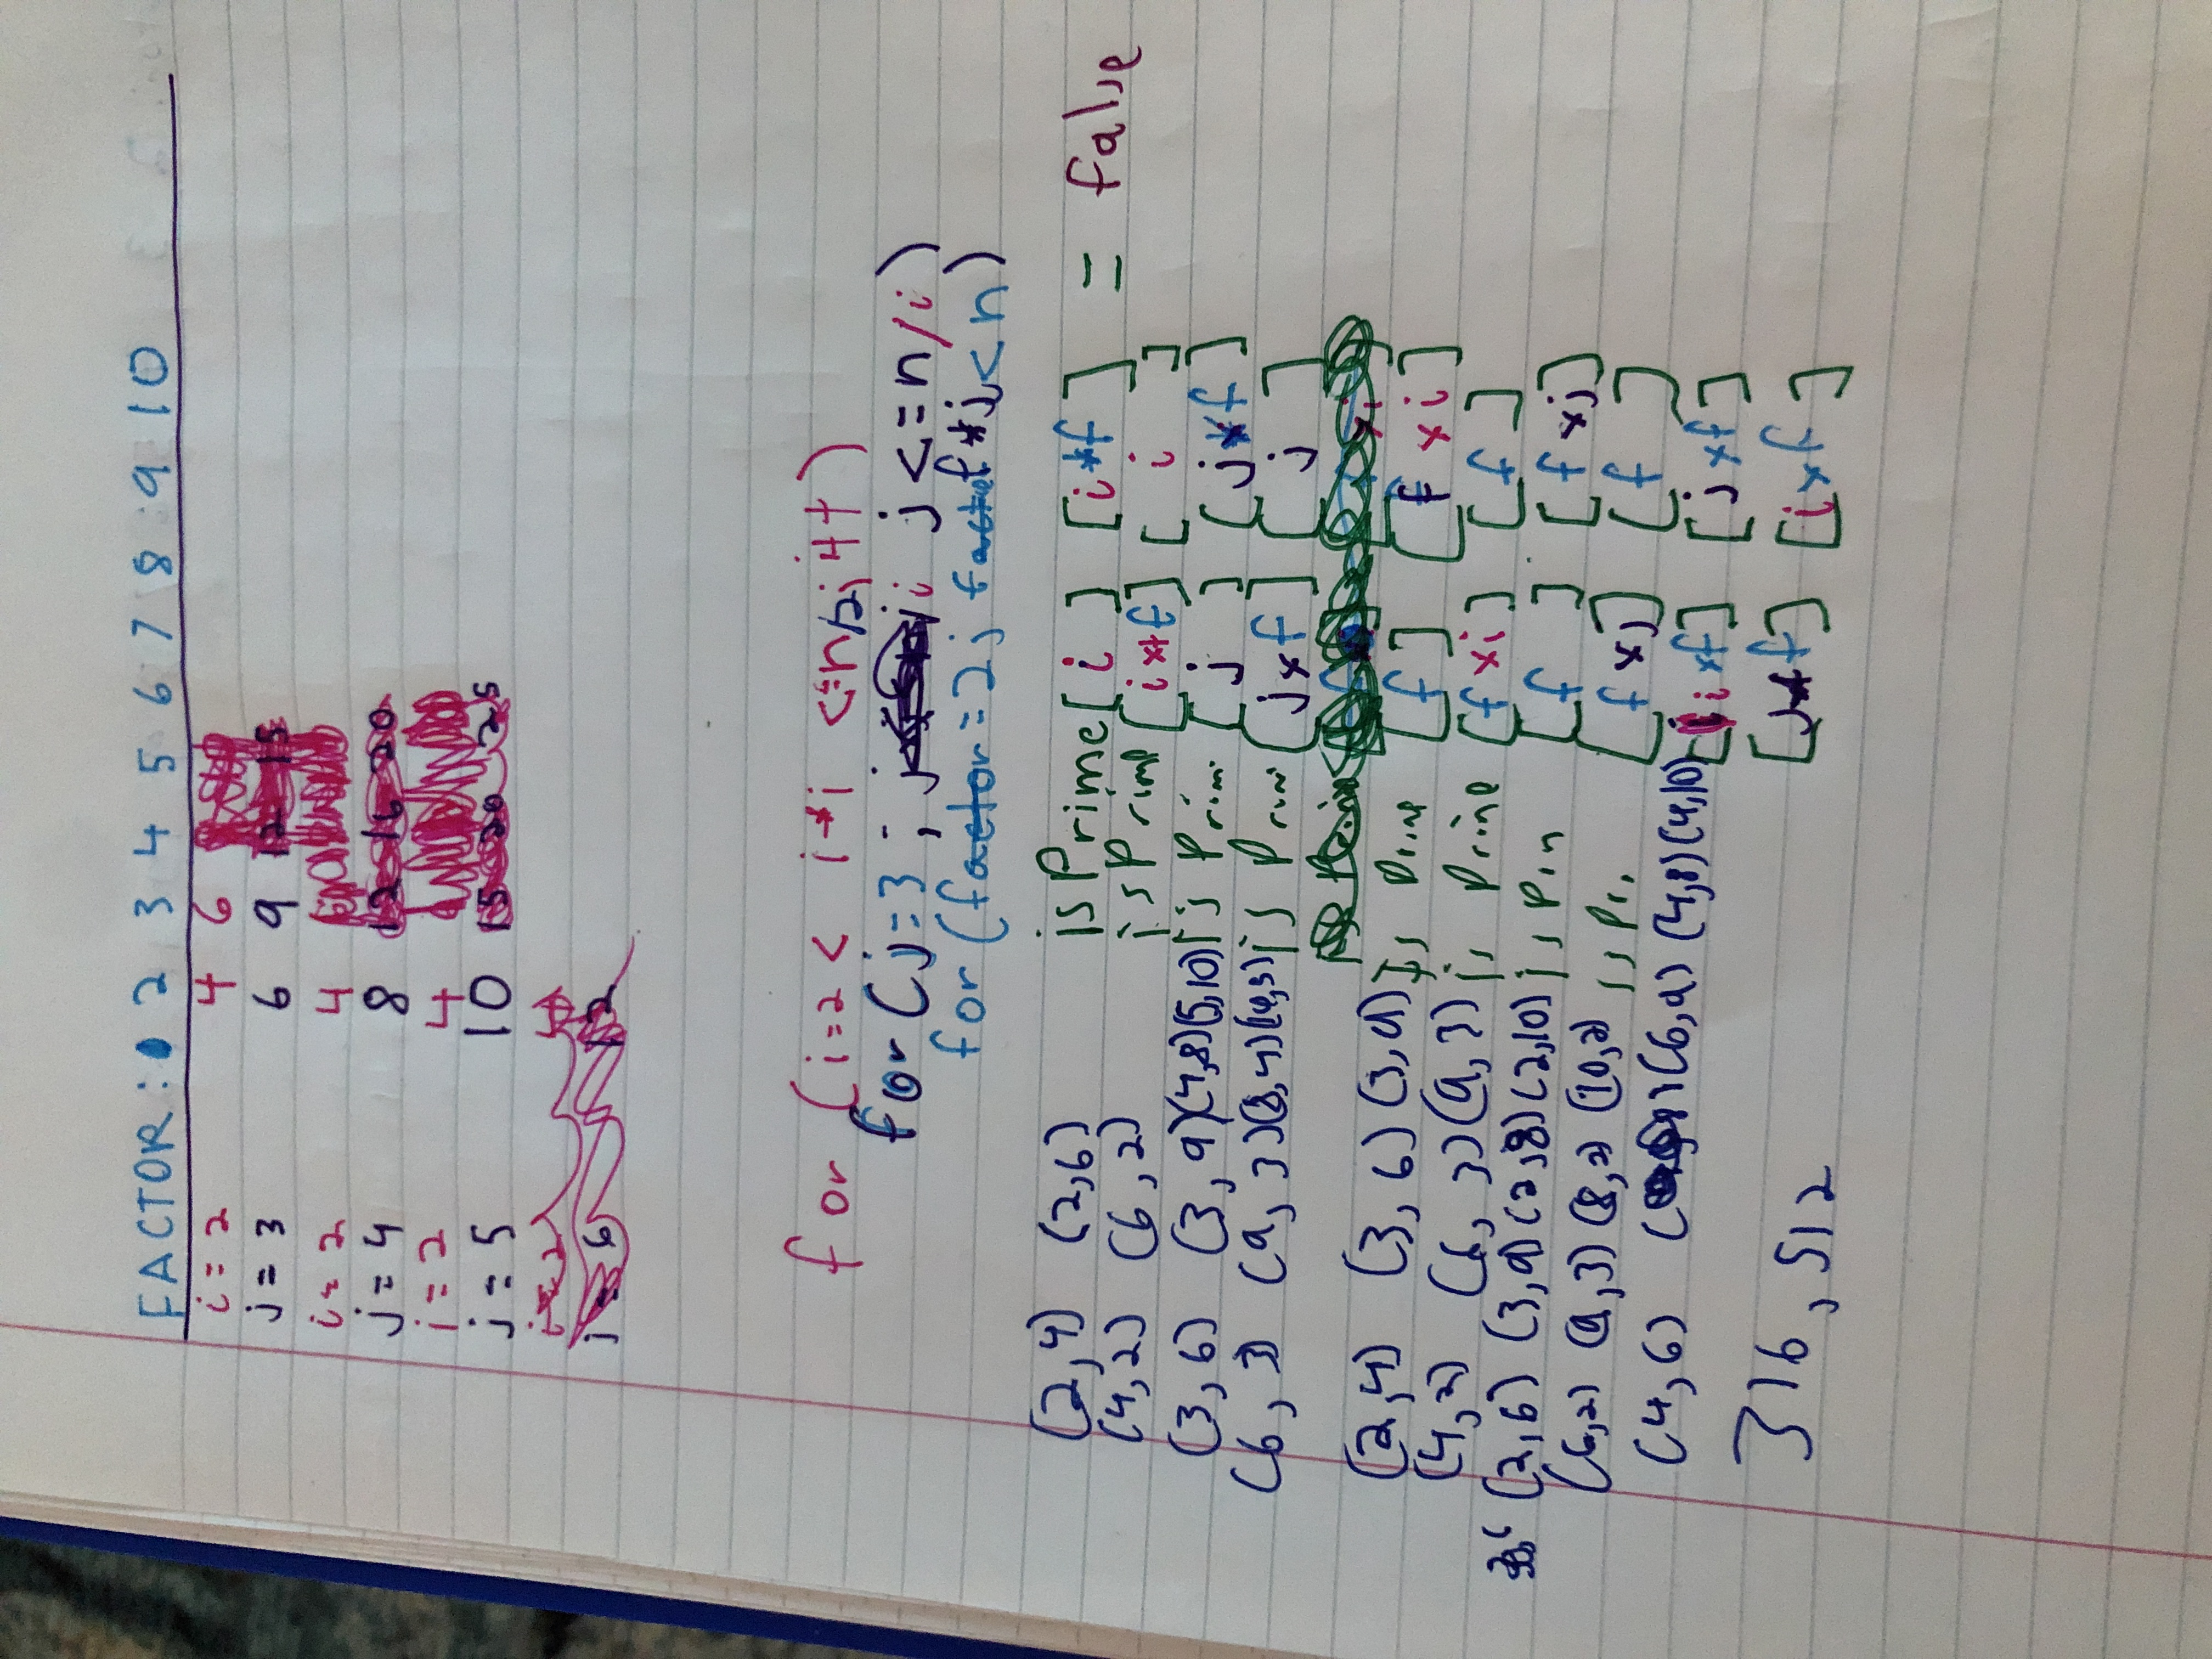 FACTOR: 2 3 4 5 6 7 8 9 10
i = 2 4 6
j = 3 6 9 12 15
i = 2 4
j = 4 8 12 16 20
i = 2 4
j = 5 10 15 20 25
i = 2 4
j = 6 12
for (i=2 < i*i <=n/2; i++)
for (j=3 ; j <=n/i)
for (factor = 2; f*j < n)
(2,4) (2,6) isPrime[i] [i*f] = false
(4,2) (6,2) isPrime [i*f] [i]
(3,6) (3,9)(4,8)(5,10) is Prim [j] [j*f]
(6,3) (9,3)(8,4) is Prim [j*f] [j]
(2,4) (3,6) (3,9) Is Prime [f] [f x i]
(4,2) (6,3)(9,3) is Prime [f x i] [f]
(2,6) (3,9) (2,8)(2,10) is Prim [f] [f x j]
(6,2) (9,3) (8,2) (10,2) is Pri [f x j] [f]
(4,6) (6,9) (4,8)(4,10) [i x f] [j x f]
316, 512 [j*f] [i x f]